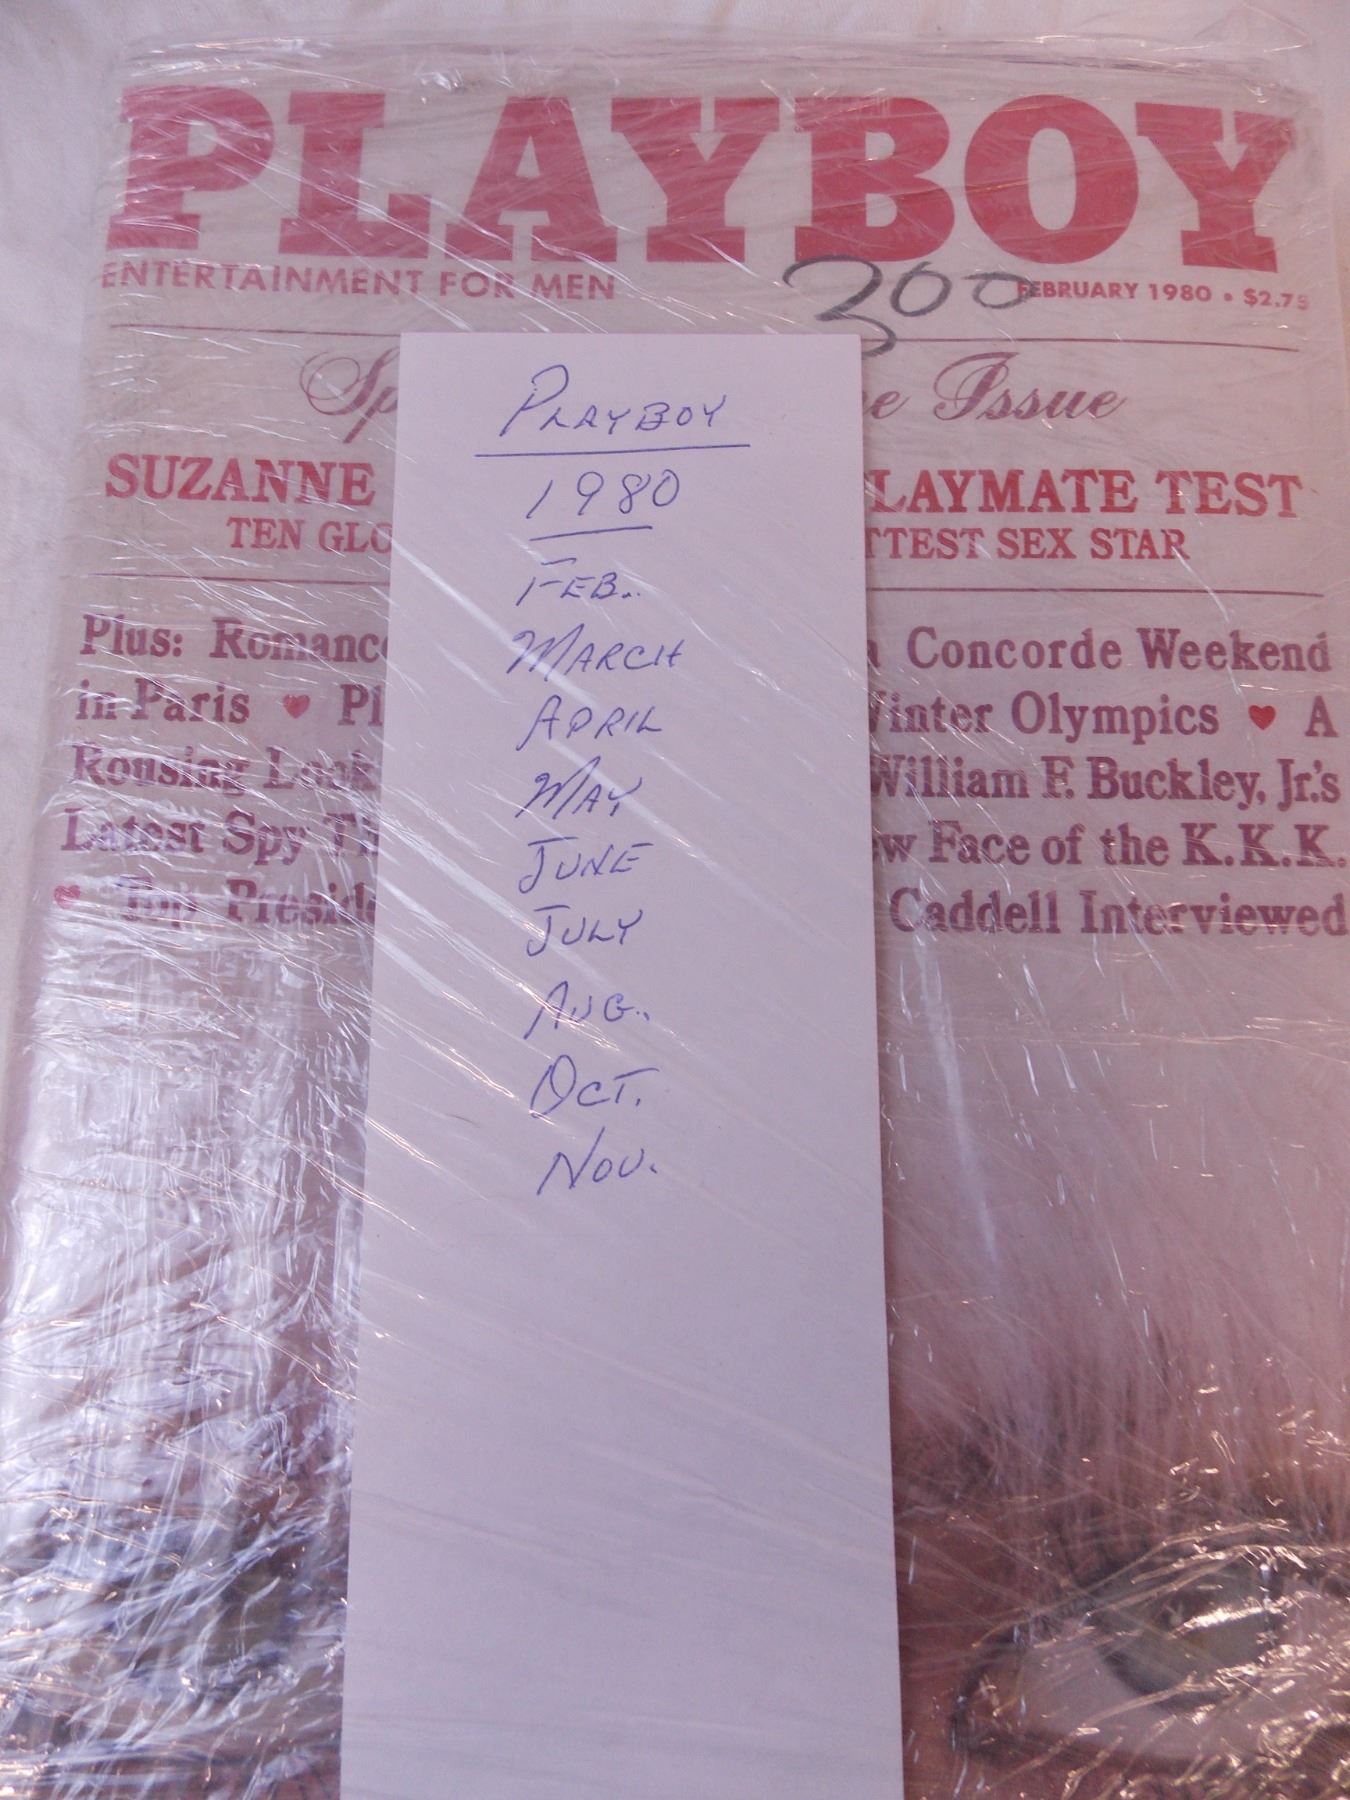 PLAYBOY
ENTERTAINMENT FOR MEN
300
FEBRUARY 1980 • $2.75
Issue
SUZANNE
PLAYMATE TEST
TEN
SEX STAR
Plus: Romance
Concorde Weekend
in Paris ♥
Winter Olympics ♥ A
Rousing Look
William F. Buckley, Jr.'s
Latest Spy
Face of the K.K.K.
♥ Top
Caddell Interviewed
PLAYBOY
1980
FEB.
MARCH
APRIL
MAY
JUNE
JULY
AUG.
OCT.
NOV.